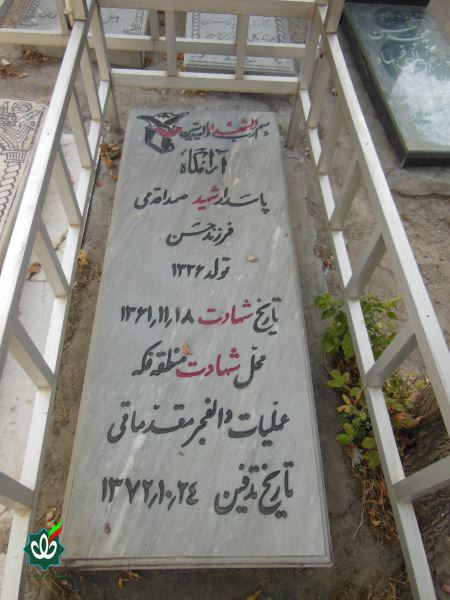 بسم رب الشهداء و الصدیقین
آرامگاه
پاسدار شهید صمد اقدمی
فرزند حسن
تولد ۱۳۳۶
تاریخ شهادت ۱۳۶۱٫۱۱٫۱۸
محل شهادت منطقه فکه
عملیات والفجر مقدماتی
تاریخ تدفین ۱۳۷۲٫۱۰٫۲۴